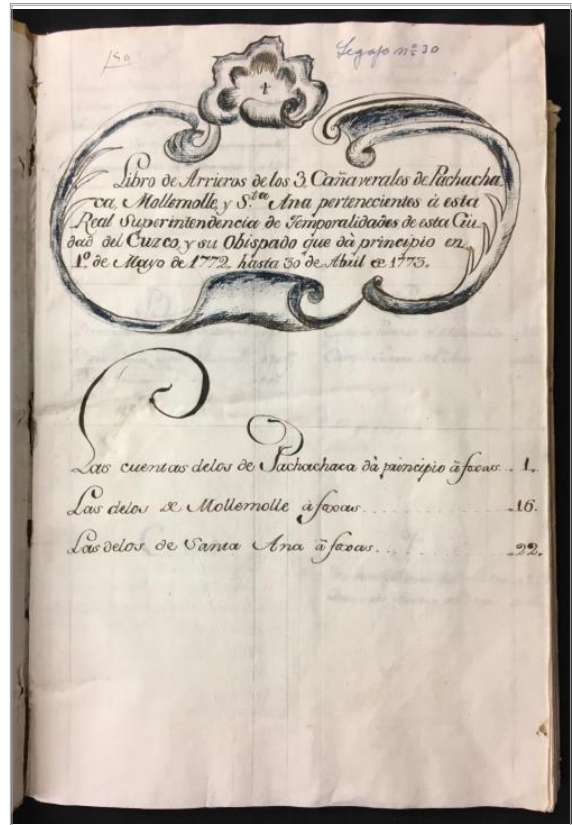 150
Legajo nº 30
1
Libro de Arrieros de los 3 Cañaverales de Pachacha
ca, Mollemolle, y S.ta Ana pertenecientes à esta
Real Superintendencia de Temporalidades de esta Ciu
dad del Cuzco, y su Obispado que dà principio en
1º. de Mayo de 1772. hasta 30 de Abril de 1773.
Las cuentas delos de Pachachaca dà principio à foxas .. 1.
Las delos de Mollemolle à foxas . . . . . . . . . . . . . . 16.
Las delos de Santa Ana à foxas . . . . . . . . . . . . . . 22.